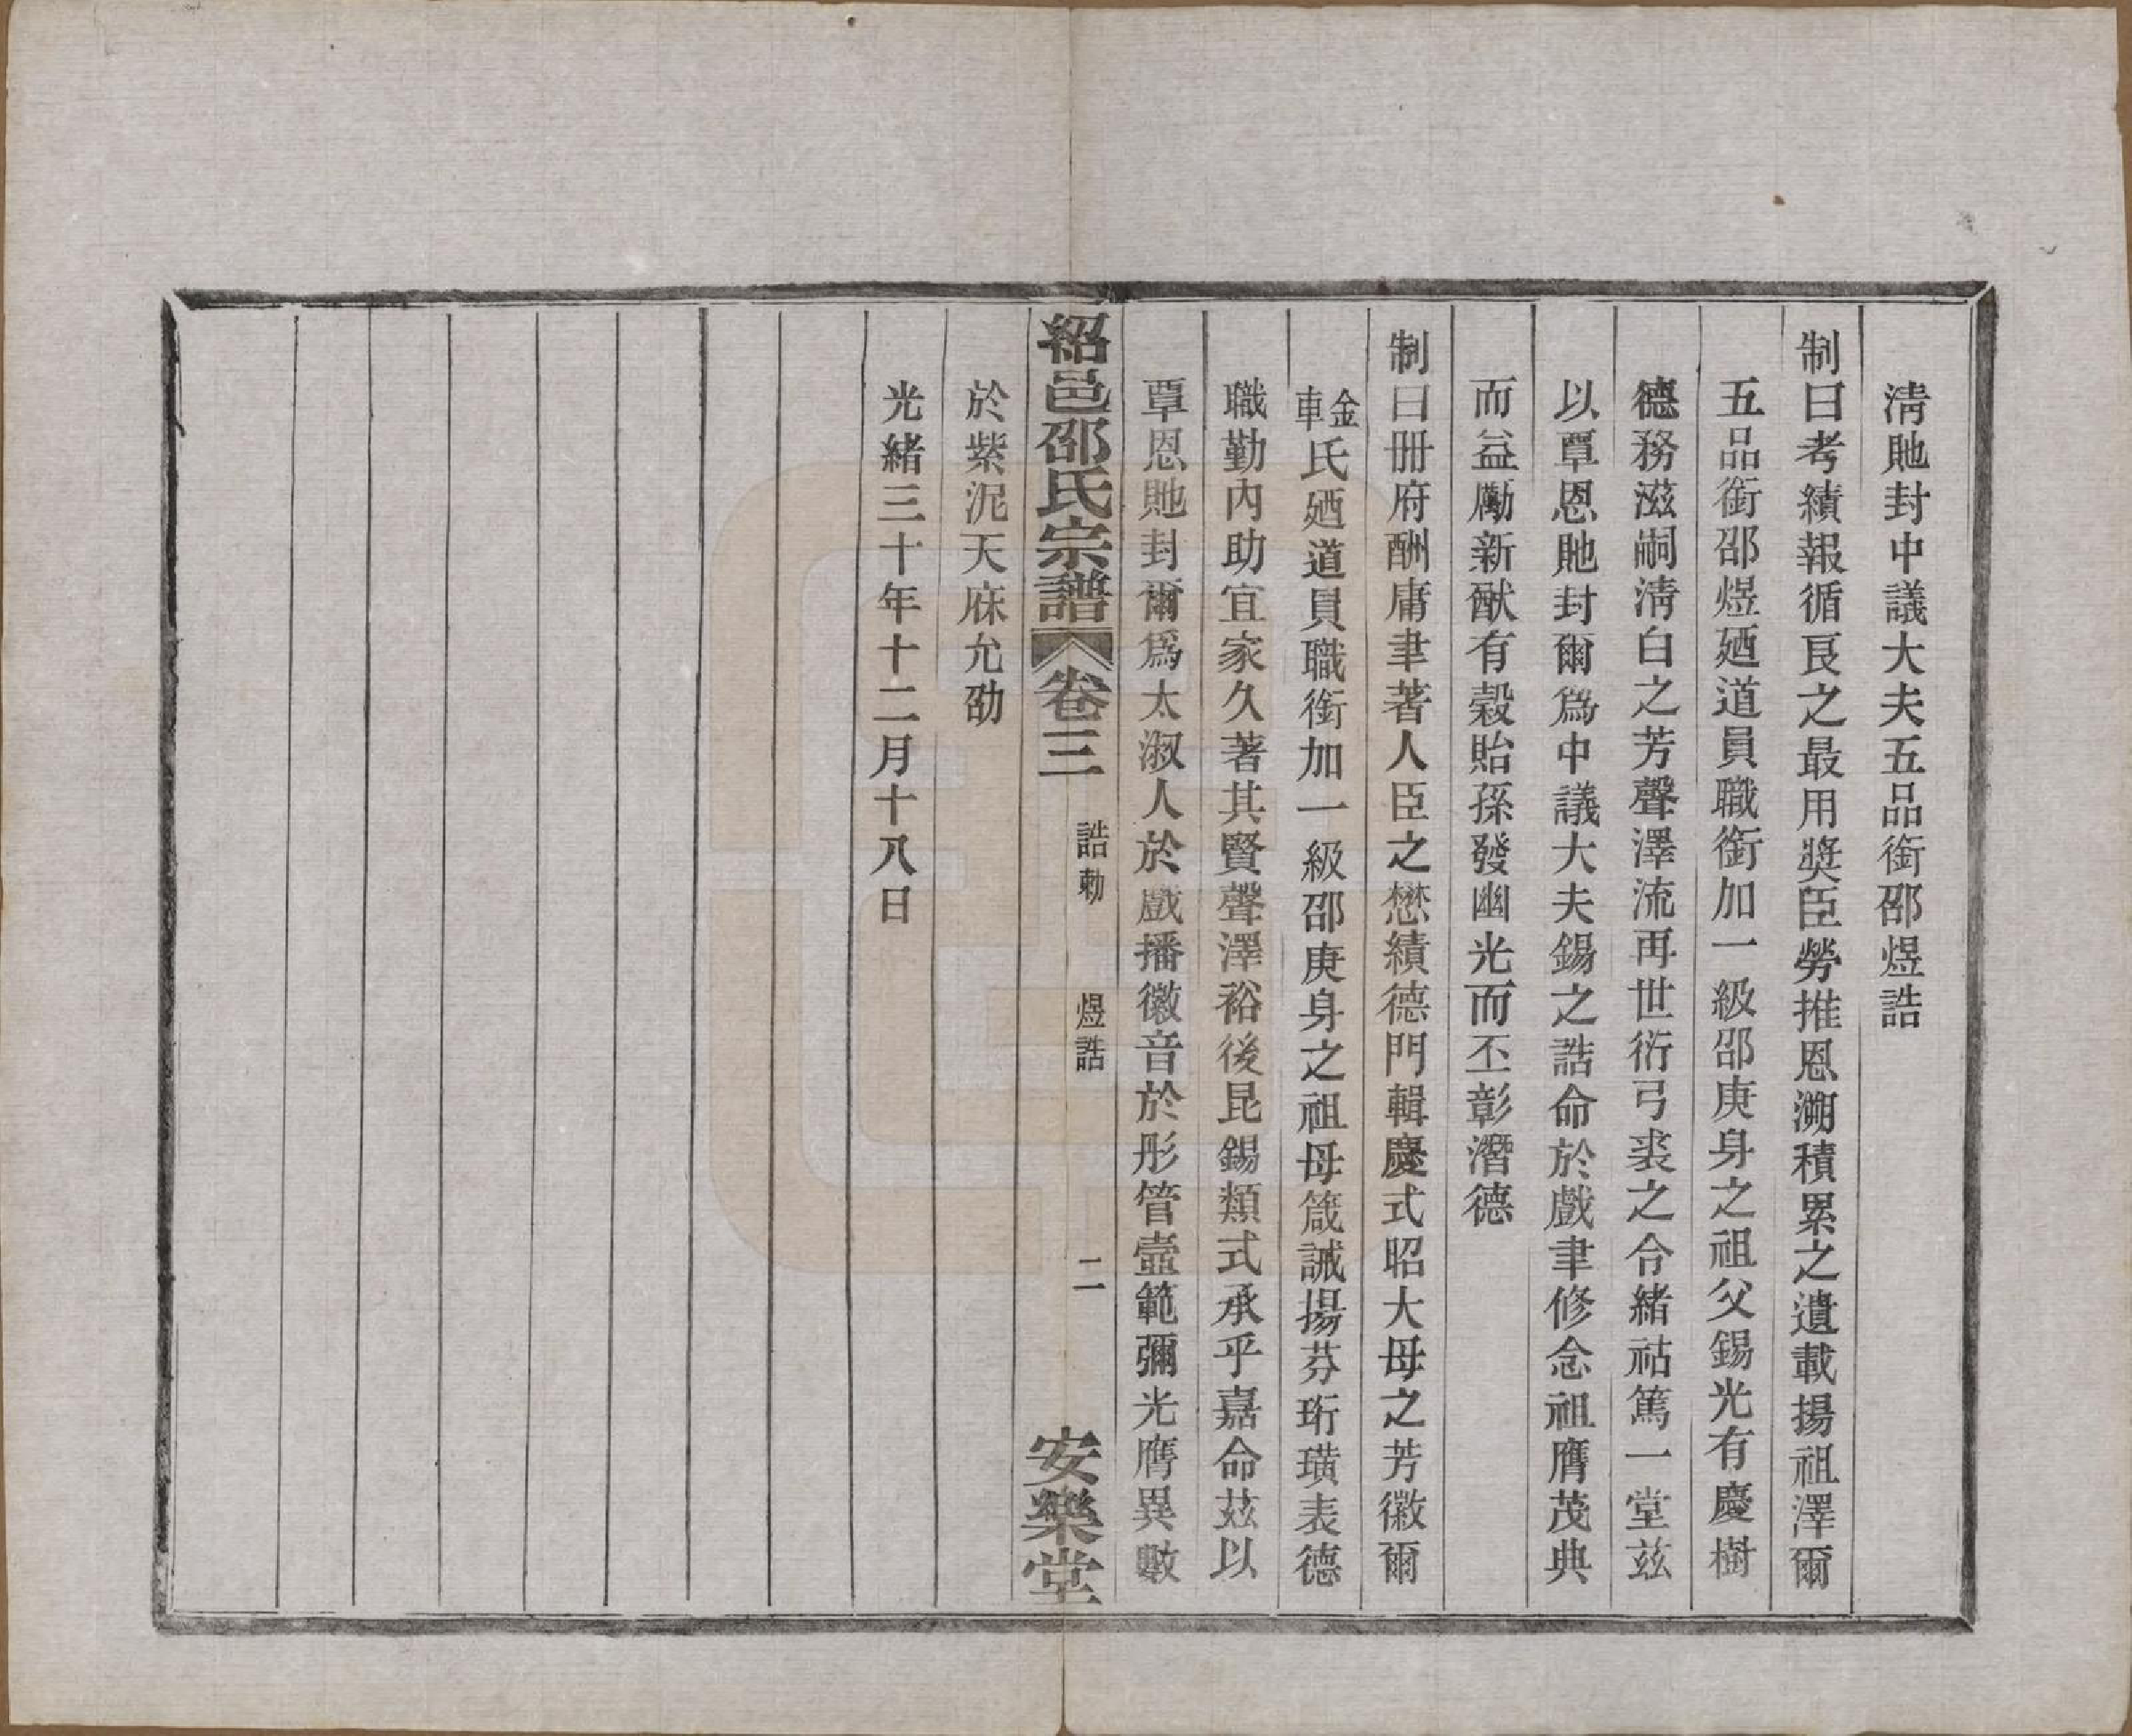 清貤封中議大夫五品銜邵煜誥
制曰考績報循良之最用奬臣勞推恩溯積累之遺載揚祖澤爾
五品銜邵煜廼道員職銜加一級邵庚身之祖父錫光有慶樹
德務滋嗣淸白之芳聲澤流再世衍弓裘之令緒祜篤一堂茲
以覃恩貤封爾爲中議大夫錫之誥命於戲聿修念祖膺茂典
而益勵新猷有穀貽孫發幽光而丕彰潛德
制曰冊府酬庸聿著人臣之懋績德門輯慶式昭大母之芳徽爾
金車氏廼道員職銜加一級邵庚身之祖母箴誡揚芬珩璜表德
職勤內助宜家久著其賢聲澤裕後昆錫類式承乎嘉命茲以
覃恩貤封爾爲太淑人於戲播徽音於彤管壼範彌光膺異數
紹邑邵氏宗譜 卷三 誥勅 煜誥 二 安樂堂
於紫泥天庥允劭
光緒三十年十二月十八日